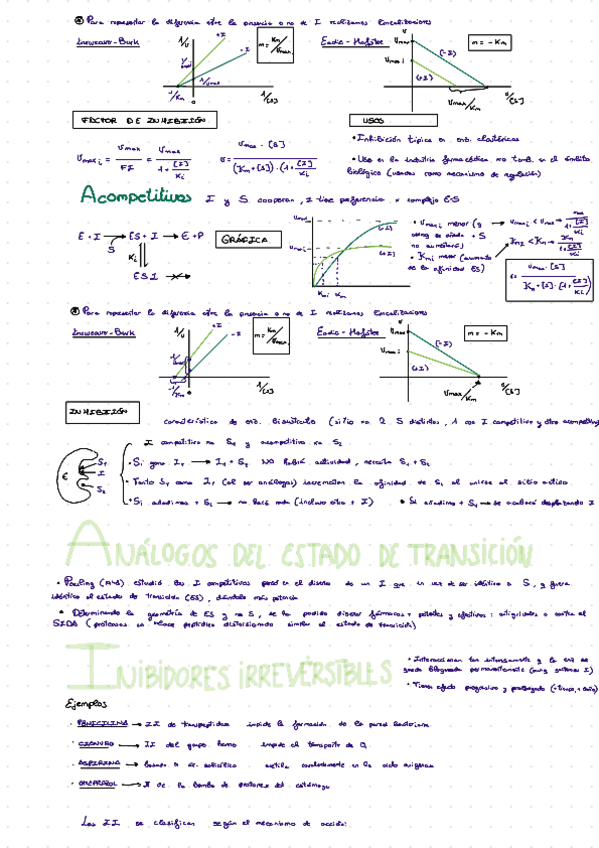 Para representar la diferencia entre la presencia o no de I realizamos linealizaciones
Lineweaver-Burk
1/V
+I
-I
m = Km/Vmax
1/Vmax
1/Km
0
1/[S]
Eadie-Hofstee
V
Vmax
Vmax i
(-I)
(+I)
m = - Km
Vmax/Km
V/[S]
FACTOR DE INHIBICIÓN
USOS
Vmax i = Vmax / FI = Vmax / 1 + [I]/Ki
V = Vmax · [S] / (Km + [S]) · (1 + [I]/Ki)
• Inhibición típica en enz. alostéricas
• Uso en la industria farmacéutica, no tanto en el ámbito
biológico (usados como mecanismo de regulación)
Acompetitivos I y S cooperan, I tiene preferencia x complejo E·S
E + I → ES + I → E + P
S
Ki
ESI
GRÁFICA
Vmax
Vmax i
(-I)
(+I)
Kmi Km
• Vmax i menor (y
no aumentará)
• Kmi menor (aumento
de la afinidad ES)
Para representar la diferencia entre la presencia o no de I realizamos linealizaciones
Lineweaver-Burk
1/V
+I
-I
m = Km/Vmax
1/[S]
Eadie-Hofstee
V
Vmax
Vmax i
(-I)
(+I)
m = - Km
Vmax/Km
V/[S]
INHIBICIÓN
característico de enz. bisustrato (sitio xa 2 S distintos, 1 con I competitivo y otro acompetitivo
I competitivo xa S1 y acompetitivo xa S2
E
S1
I
S2
• Si gana I1 → I1 + S2 NO habrá actividad, necesita S1 + S2
• Tanto S1 como I1 (al ser análogos) incrementan la afinidad de S2 al unirse al sitio activo
• Si añadimos + S2 → no hará nada (incluso atrae + I)
• Si añadimos + S1 → se acabará desplazando I
ANÁLOGOS DEL ESTADO DE TRANSICIÓN
• Pauling (1948) estudió los I competitivos pensó en el diseño de un I que en vez de ser idéntico a S, y fuera
idéntico al estado de transición (ES), dándole más potencia
• Determinando la geometría de ES y no S, se ha podido diseñar fármacos + potentes y efectivos: antigripales o contra el
SIDA (proteasas un enlace peptídico distorsionado similar al estado de transición)
INIBIDORES IRREVERSIBLES
• Interaccionan tan intensamente y la enz se
queda bloqueada permanentemente (aunq quitemos I)
• Tienen efecto progresivo y prolongado (+ tiempo, + daño)
Ejemplos
• PENICILINA → II de transpeptidasa impide la formación de la pared bacteriana
• CIANURO → II del grupo hemo impide el transporte de O2
• ASPIRINA → basado a ác. salicílico acetila covalentemente en la ciclo oxigenasa
• OMEPRAZOL → II de la bomba de protones del estómago
Los II se clasifican según el mecanismo de acción: